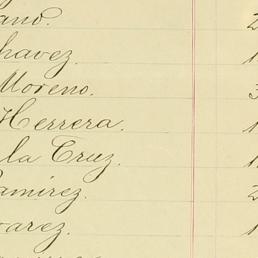 ano. 2
havez. 1
Moreno. 3
Herrera. 1
la Cruz. 1
amirez. 2
varez. 1